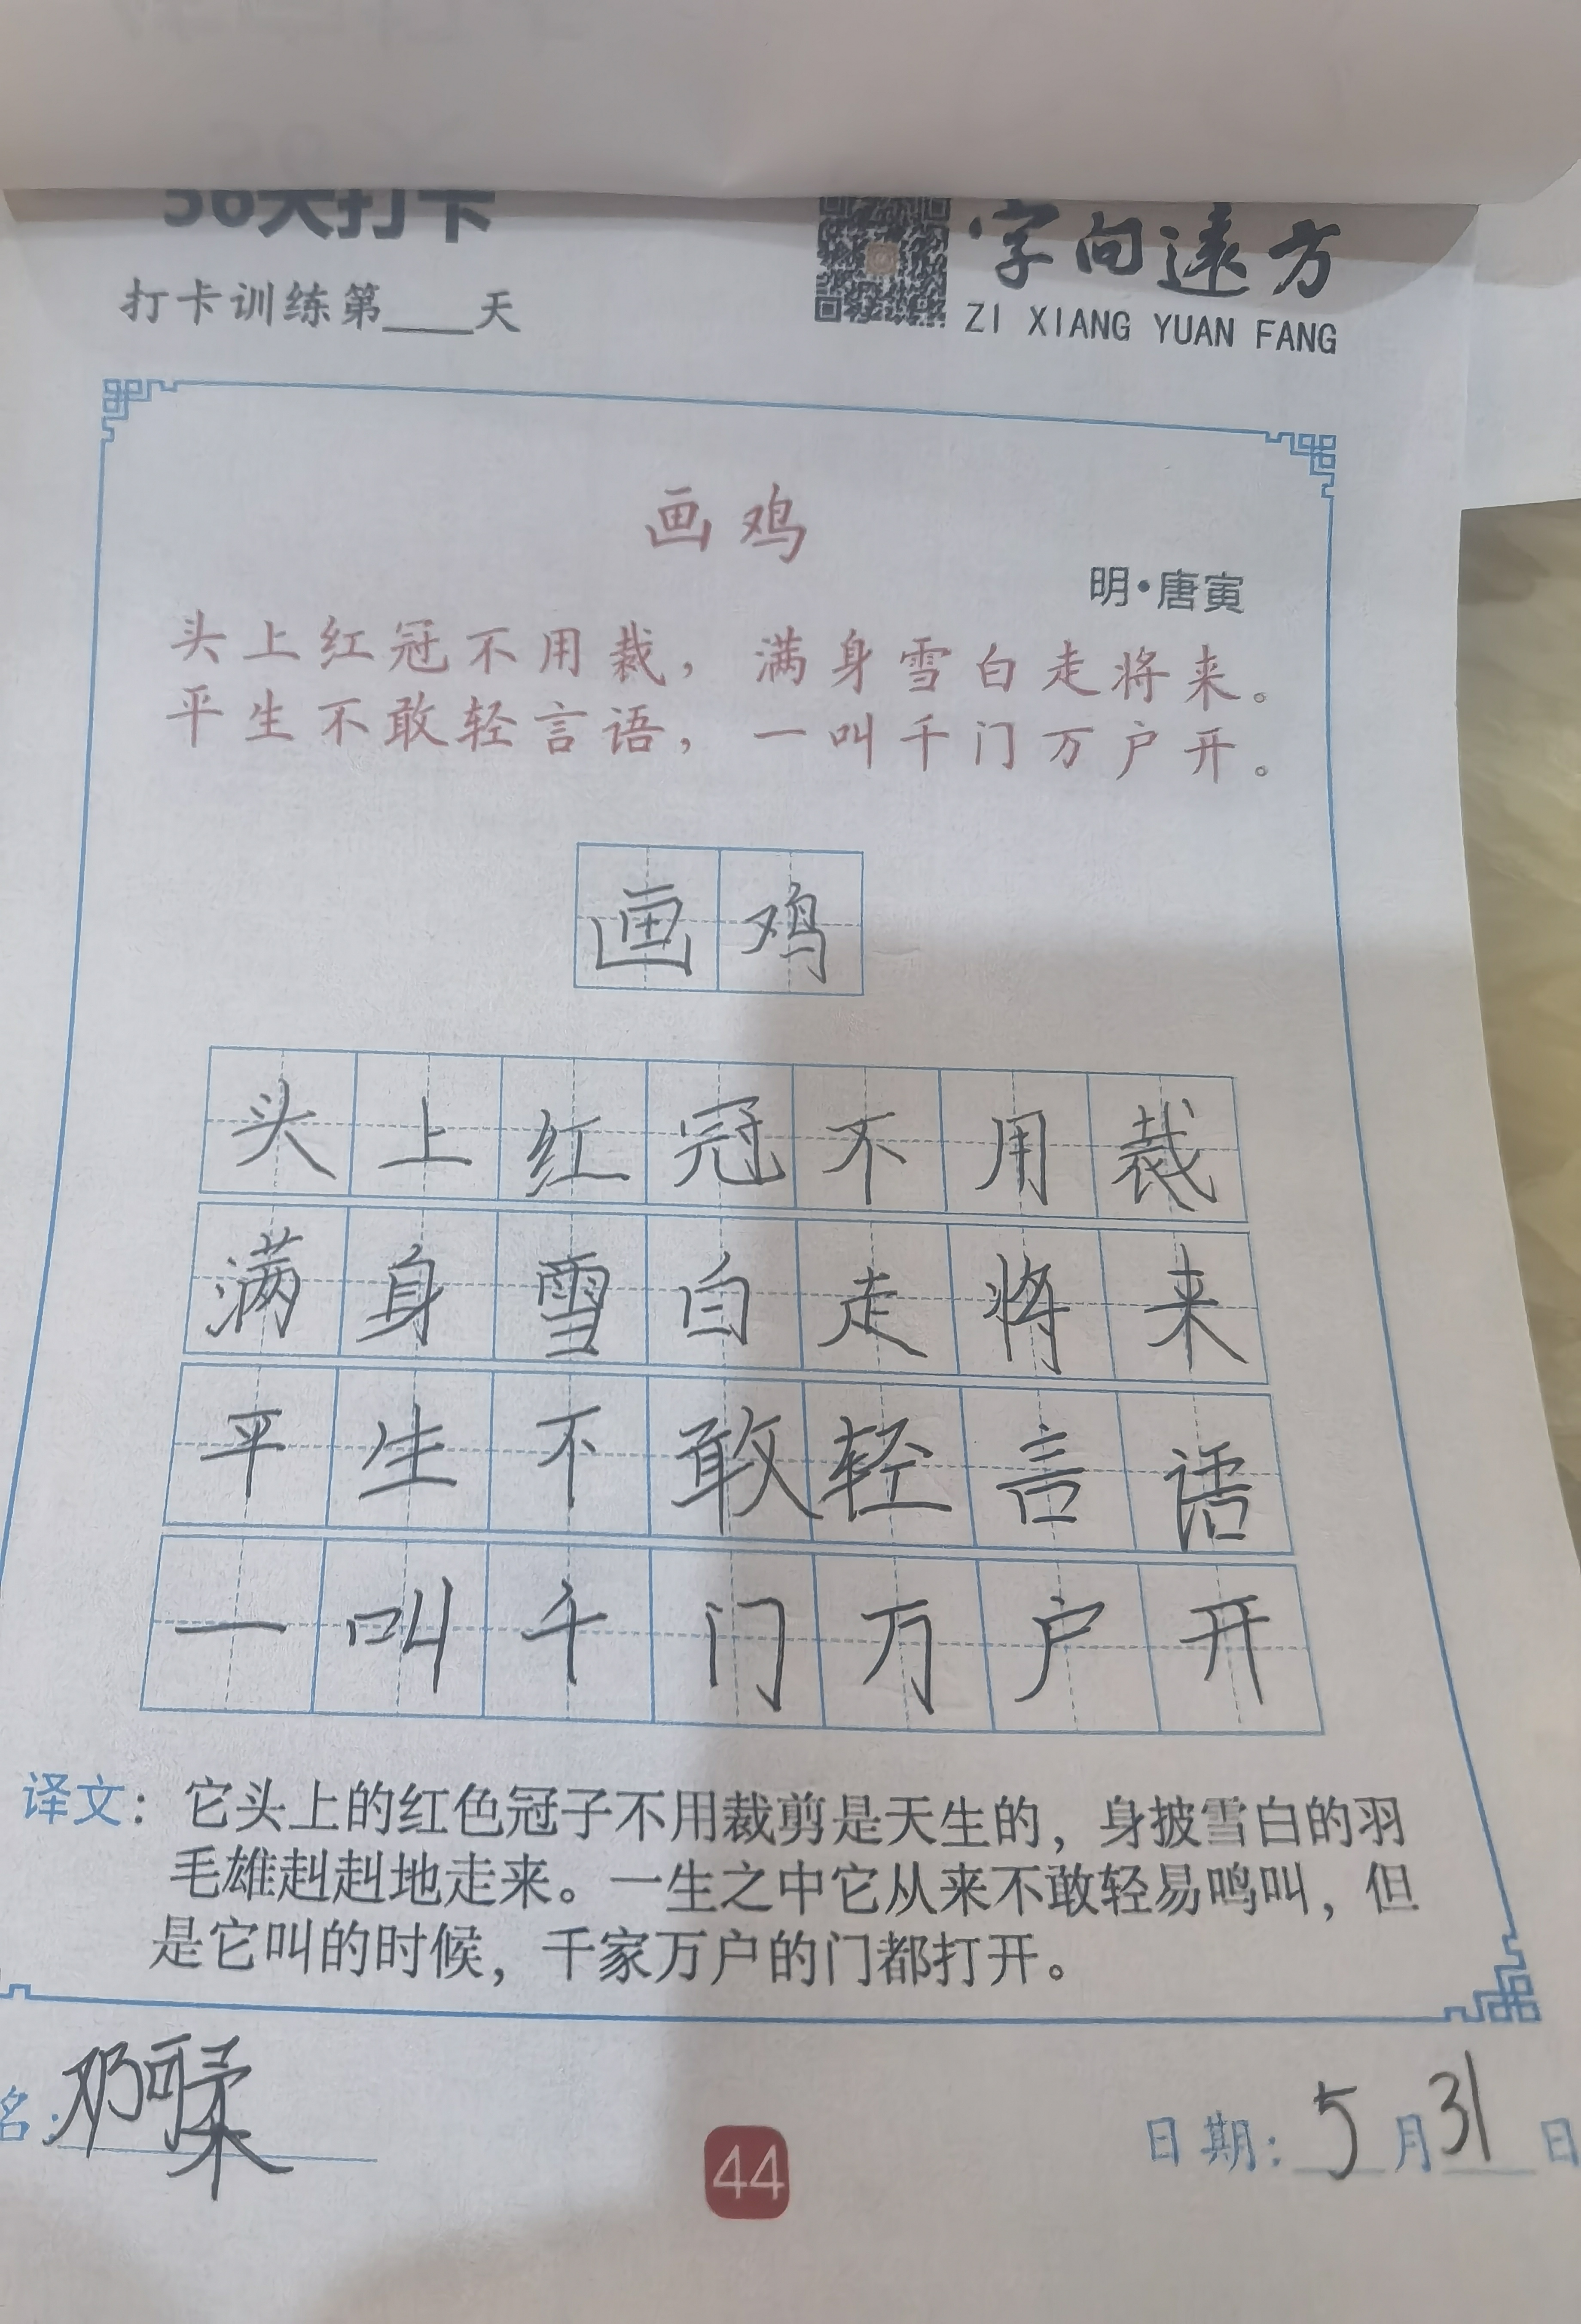 56天打卡
打卡训练第____天
字向遠方
ZI XIANG YUAN FANG
画鸡
明·唐寅
头上红冠不用裁，满身雪白走将来。
平生不敢轻言语，一叫千门万户开。
画鸡
头上红冠不用裁
满身雪白走将来
平生不敢轻言语
一叫千门万户开
译文：它头上的红色冠子不用裁剪是天生的，身披雪白的羽
毛雄赳赳地走来。一生之中它从来不敢轻易鸣叫，但
是它叫的时候，千家万户的门都打开。
名：邓可柔
44
日期：5月31日